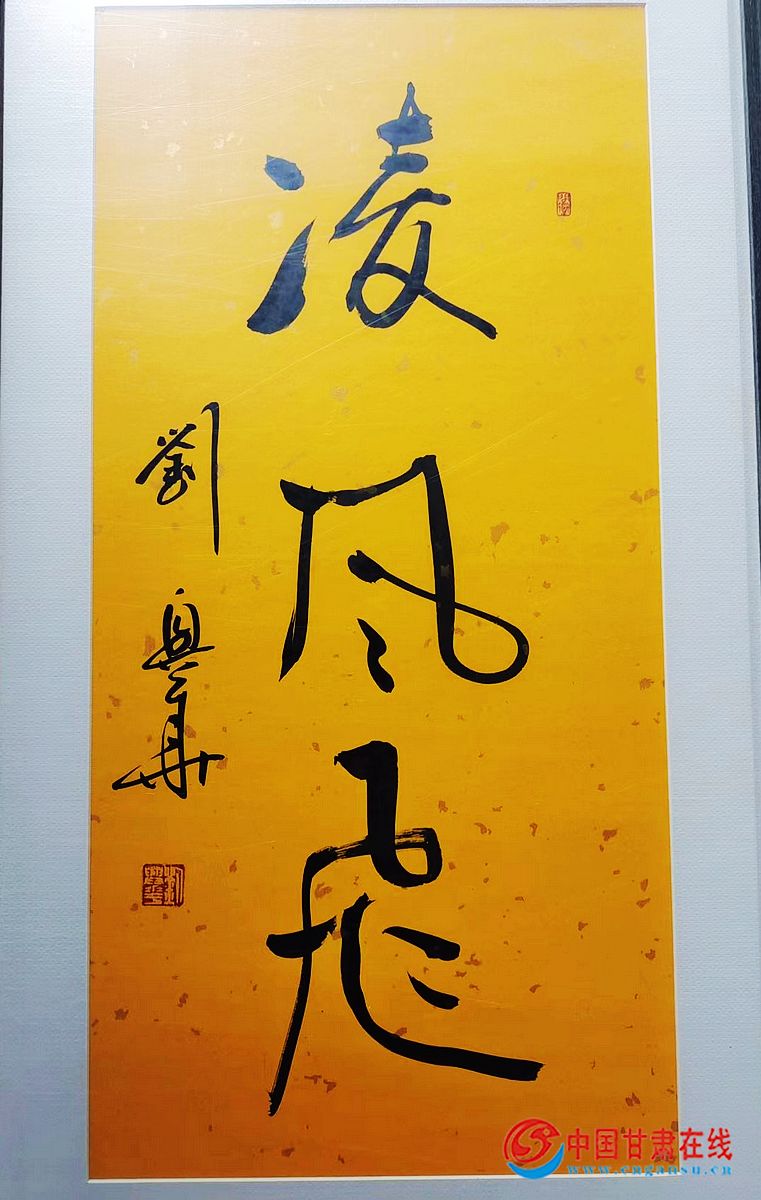 凌风飞
劉興華
中国甘肃在线
www.cngansu.cn